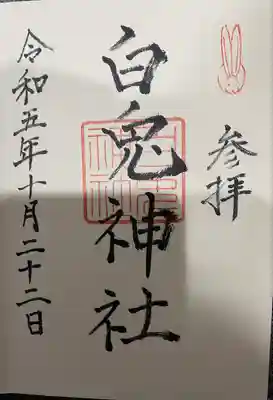 参拝
白兎神社
令和五年十月二十二日